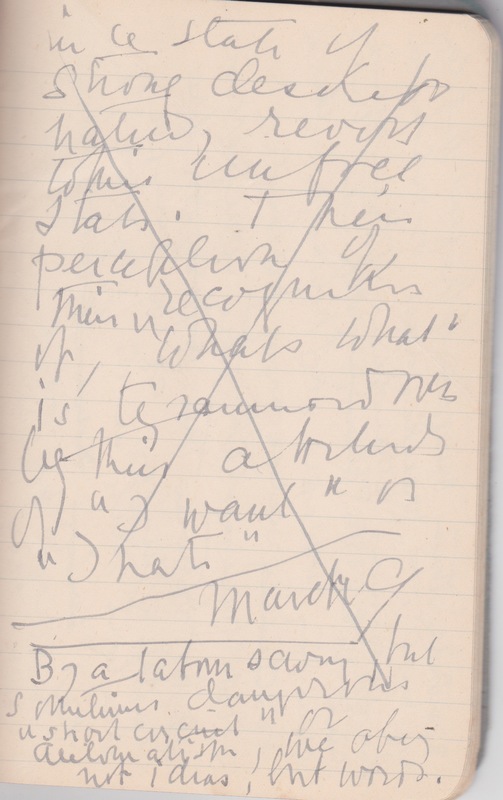 in a state of
strong desire or
hatred, revert
to this unfree
state. Their
perception of
their recognition
of, "what's what"
is
by this absolute
of "I want" or
of "I hate"
March 9
By a labour saving but
sometimes dangerous
"short circuit" or
automatism, we obey
not ideas, but words.